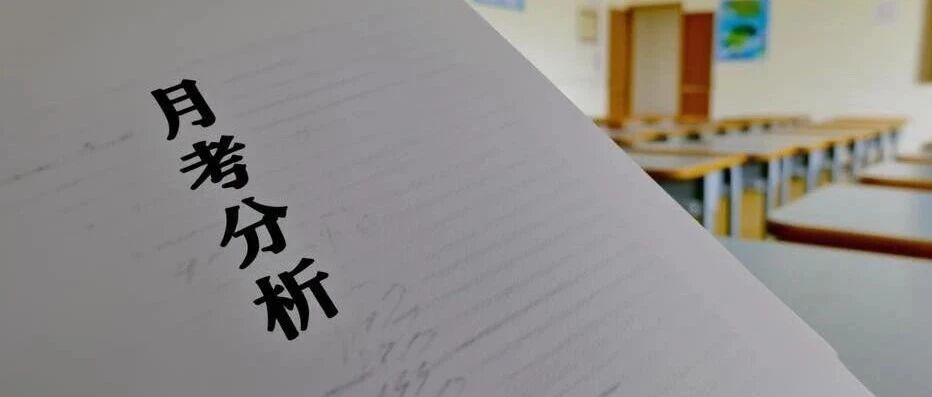 月考分析